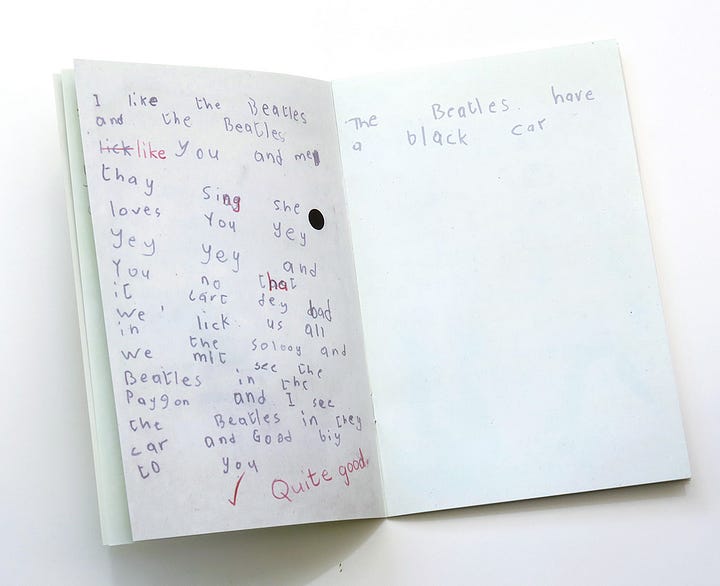 I like the Beatles
and the Beatles
lick like You and me
thay sing she
loves You yey
yey yey and
You no that
it cart dey bad
we lick us all
in the solooy and
we mit see the
Beatles in the
Paygon and I see
the Beatles in they
car and Good biy
to you
✓ Quite good.
The Beatles. have
a black car